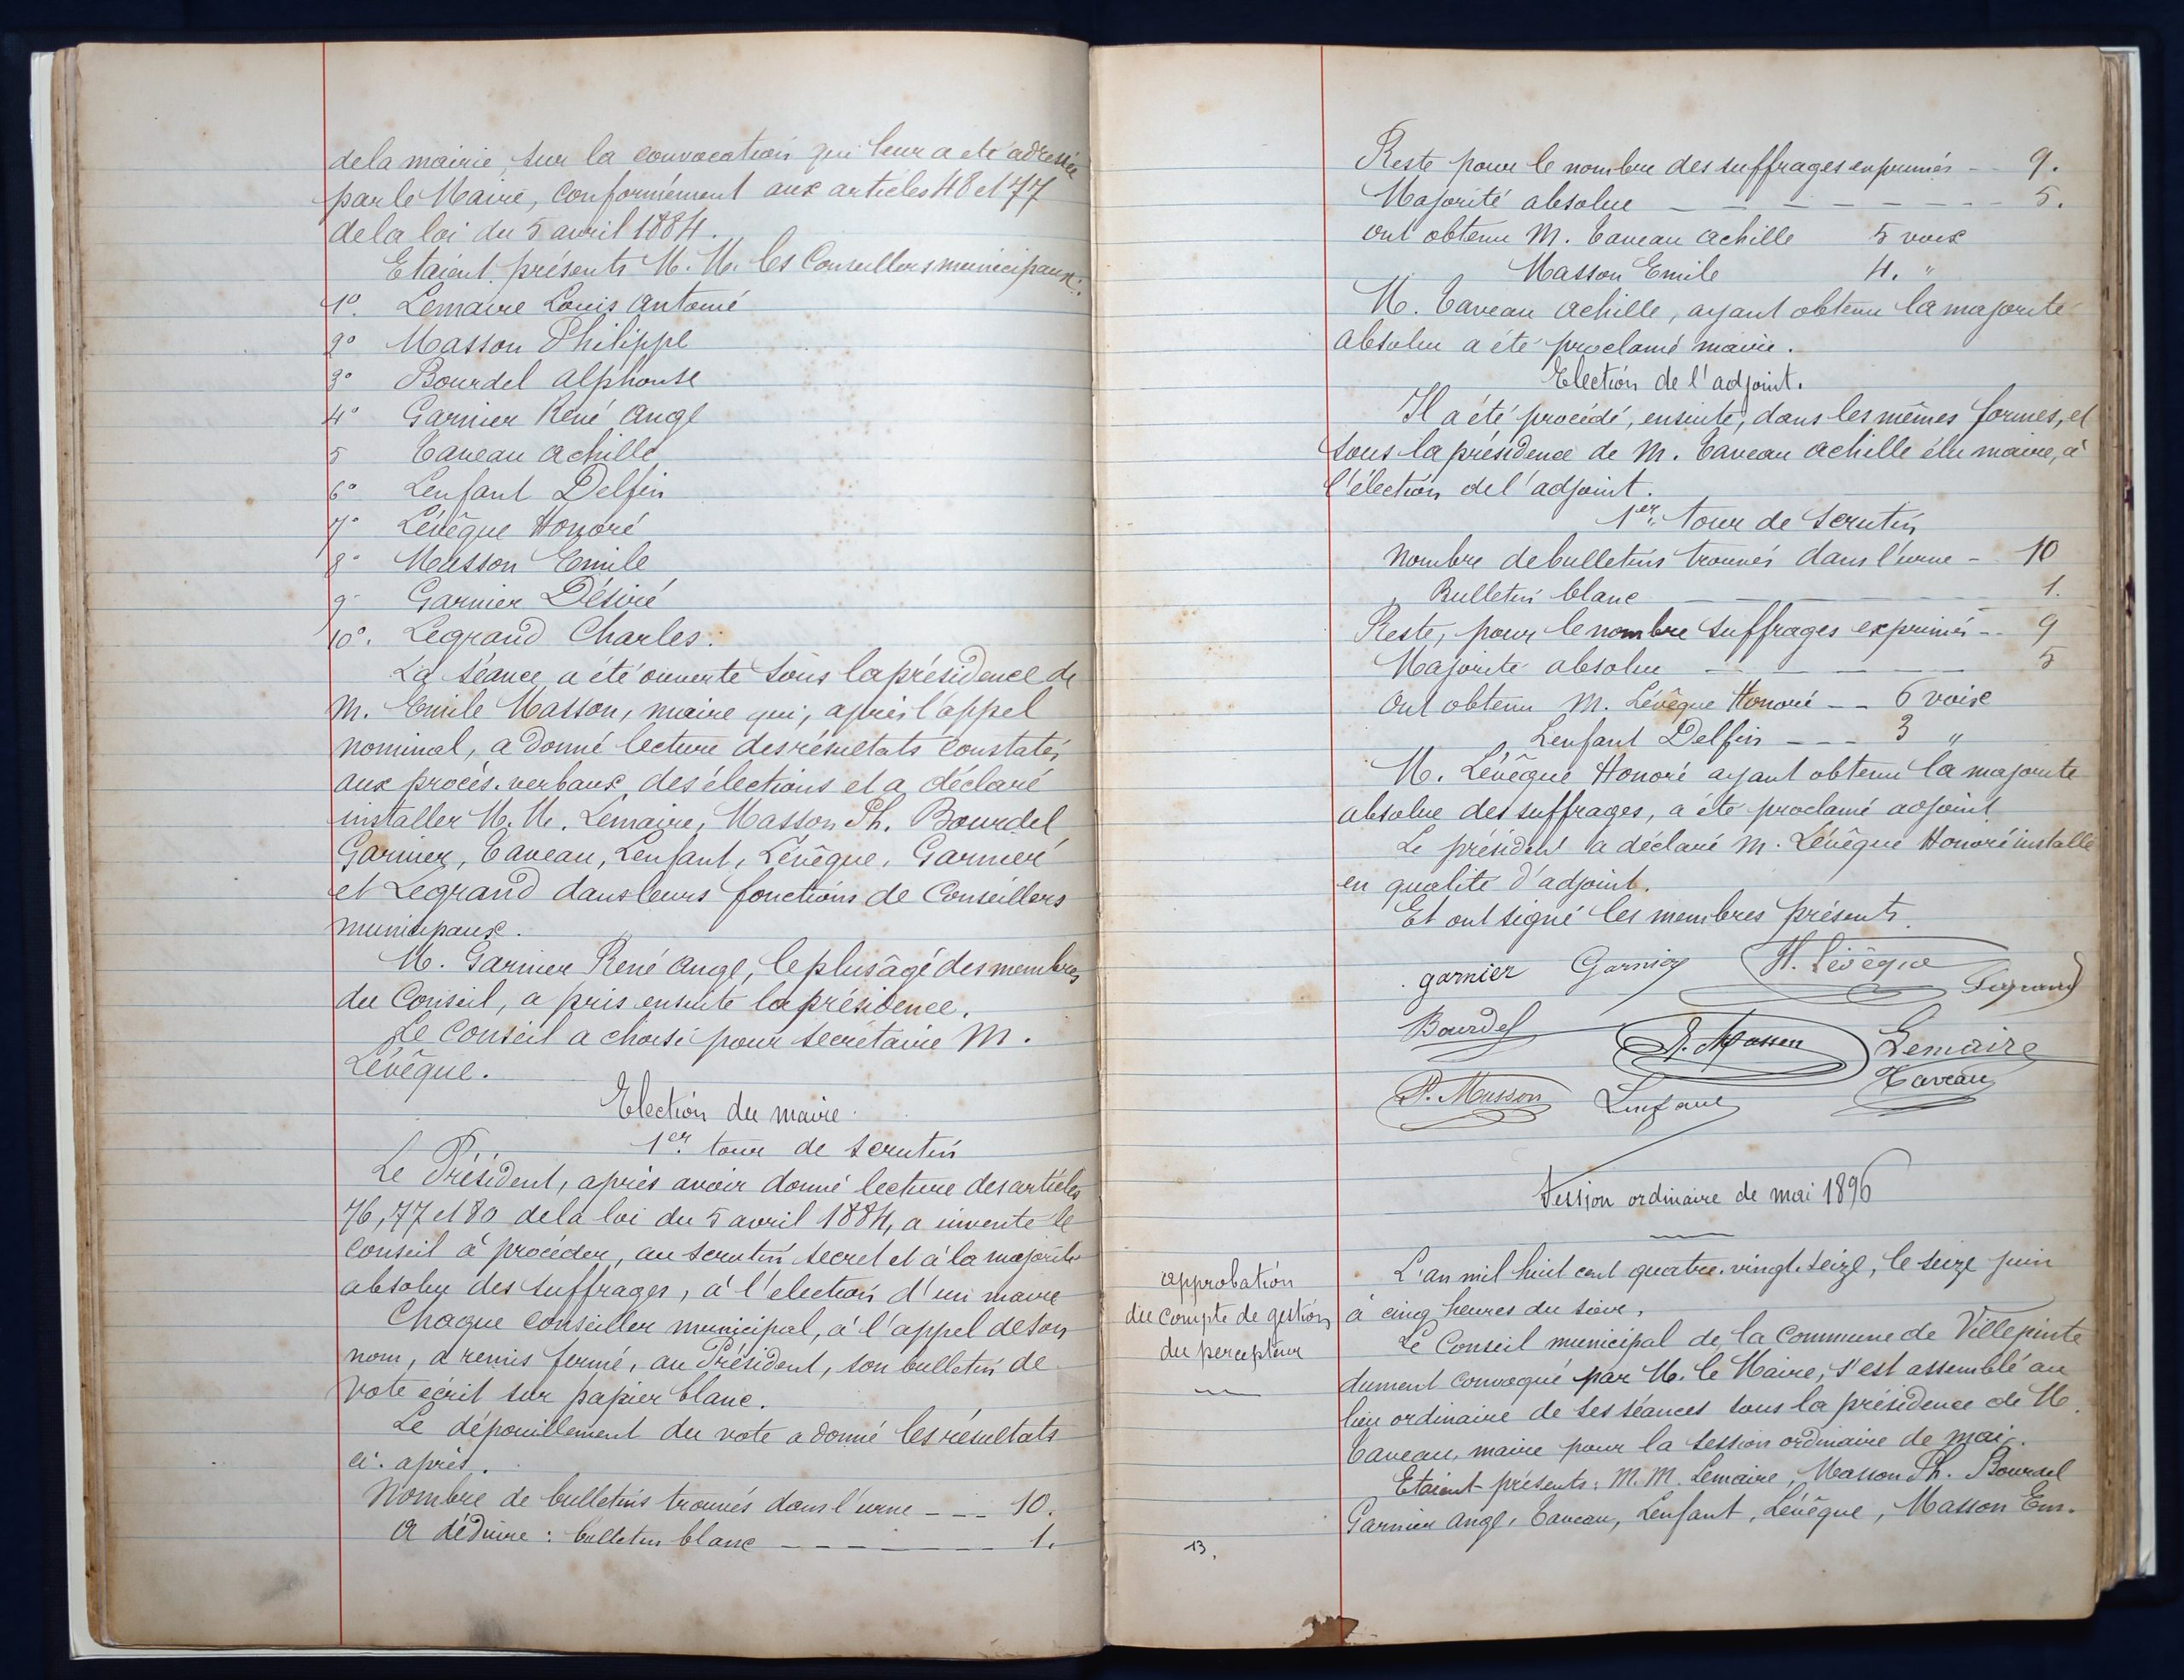 de la mairie, sur la convocation qui leur a été adressée
par le Maire, conformément aux articles 48 et 77
de la loi du 5 avril 1884.
Etaient présents M. M. les Conseillers municipaux:
1° Lemaire Louis Antoine
2° Masson Philippe
3° Bourdel Alphonse
4° Garnier René Ange
5 Taveau Achille
6° Lenfant Delfin
7° Lévêque Honoré
8° Masson Emile
9° Garnier Désiré
10°. Legrand Charles.
La séance a été ouverte sous la présidence de
M. Emile Masson, maire qui, après l'appel
nominal, a donné lecture des résultats constatés
aux procès-verbaux des élections et a déclaré
installer M. M. Lemaire, Masson Ph. Bourdel
Garnier, Taveau, Lenfant, Lévêque, Garnier
et Legrand dans leurs fonctions de Conseillers
municipaux.
M. Garnier René Ange, le plus âgé des membres
du Conseil, a pris ensuite la présidence.
Le Conseil a choisi pour secrétaire M.
Lévêque.
Election du maire.
1er. tour de scrutin
Le Président, après avoir donné lecture des articles
76, 77 et 80 de la loi du 5 avril 1884, a invente le
Conseil à procéder, au scrutin secret et à la majorité
absolue des suffrages, à l'election d'un maire
Chaque conseiller municipal, à l'appel de son
nom, a remis fermé, au Président, son bulletin de
vote écrit sur papier blanc.
Le dépouillement du vote a donné les résultats
ci-après.
Nombre de bulletins trouvés dans l'urne - - - 10.
A déduire : bulletin blanc - - - - - - - 1.
Reste pour le nombre des suffrages exprimés - - 9.
Majorité absolue - - - - - - - - 5.
Ont obtenu M. Taveau Achille 5 voix
Masson Emile 4. "
M. Taveau Achille, ayant obtenu la majorité
absolue a été proclamé maire.
Election de l'adjoint.
Il a été procédé, ensuite, dans les mêmes formes, et
sous la présidence de M. Taveau Achille élu maire, à
l'élection de l'adjoint.
1er. tour de scrutin
Nombre de bulletins trouvés dans l'urne - 10
Bulletin blanc - - - - - - 1.
Reste, pour le nombre suffrages exprimés - - 9
Majorité absolue - - - - - 5
Ont obtenu M. Lévêque Honoré - - 6 voix
Lenfant Delfin - - - 3 "
M. Lévêque Honoré ayant obtenu la majorité
absolue des suffrages, a été proclamé adjoint
Le président a déclaré M. Lévêque Honoré installé
en qualité d'adjoint.
Et ont signé les membres présents.
garnier Garnier H. Lévêque Legrand
Bourdel Masson Lemaire
P. Masson Lenfant Taveau
Session ordinaire de mai 1896
approbation
du compte de gestion
du percepteur
L'an mil huit cent quatre-vingt-seize, le seize juin
à cinq heures du soir,
Le Conseil municipal de la Commune de Villepinte
dument convoqué par M. le Maire, s'est assemblé au
lieu ordinaire de ses séances sous la présidence de M.
Taveau, maire pour la session ordinaire de mai.
Etaient présents: M. M. Lemaire, Masson Ph. Bourdel
Garnier Ange, Taveau, Lenfant, Lévêque, Masson Em.
13.